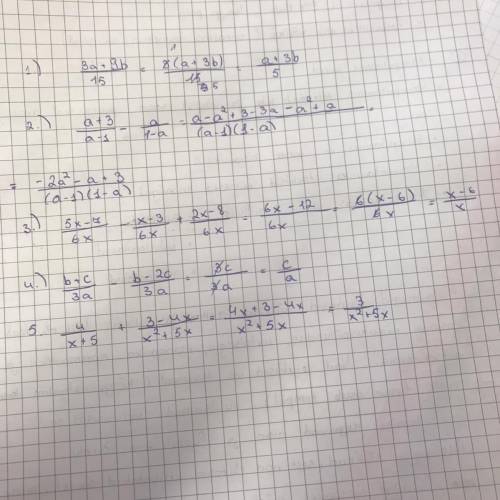 1.) (3a+9b)/15 = 3(a+3b)/15 = (a+3b)/5
2.) (a+3)/(a-1) - a/(1-a) = (a-a²+3-3a-a²+a)/((a-1)(1-a)) =
= (-2a²-a+3)/((a-1)(1-a))
3.) (5x-7)/6x - (x-3)/6x + (2x-8)/6x = (6x-12)/6x = 6(x-6)/6x = (x-6)/x
4.) (b+c)/3a - (b-2c)/3a = 3c/3a = c/a
5. 4/(x+5) + (3-4x)/(x²+5x) = (4x+3-4x)/(x²+5x) = 3/(x²+5x)